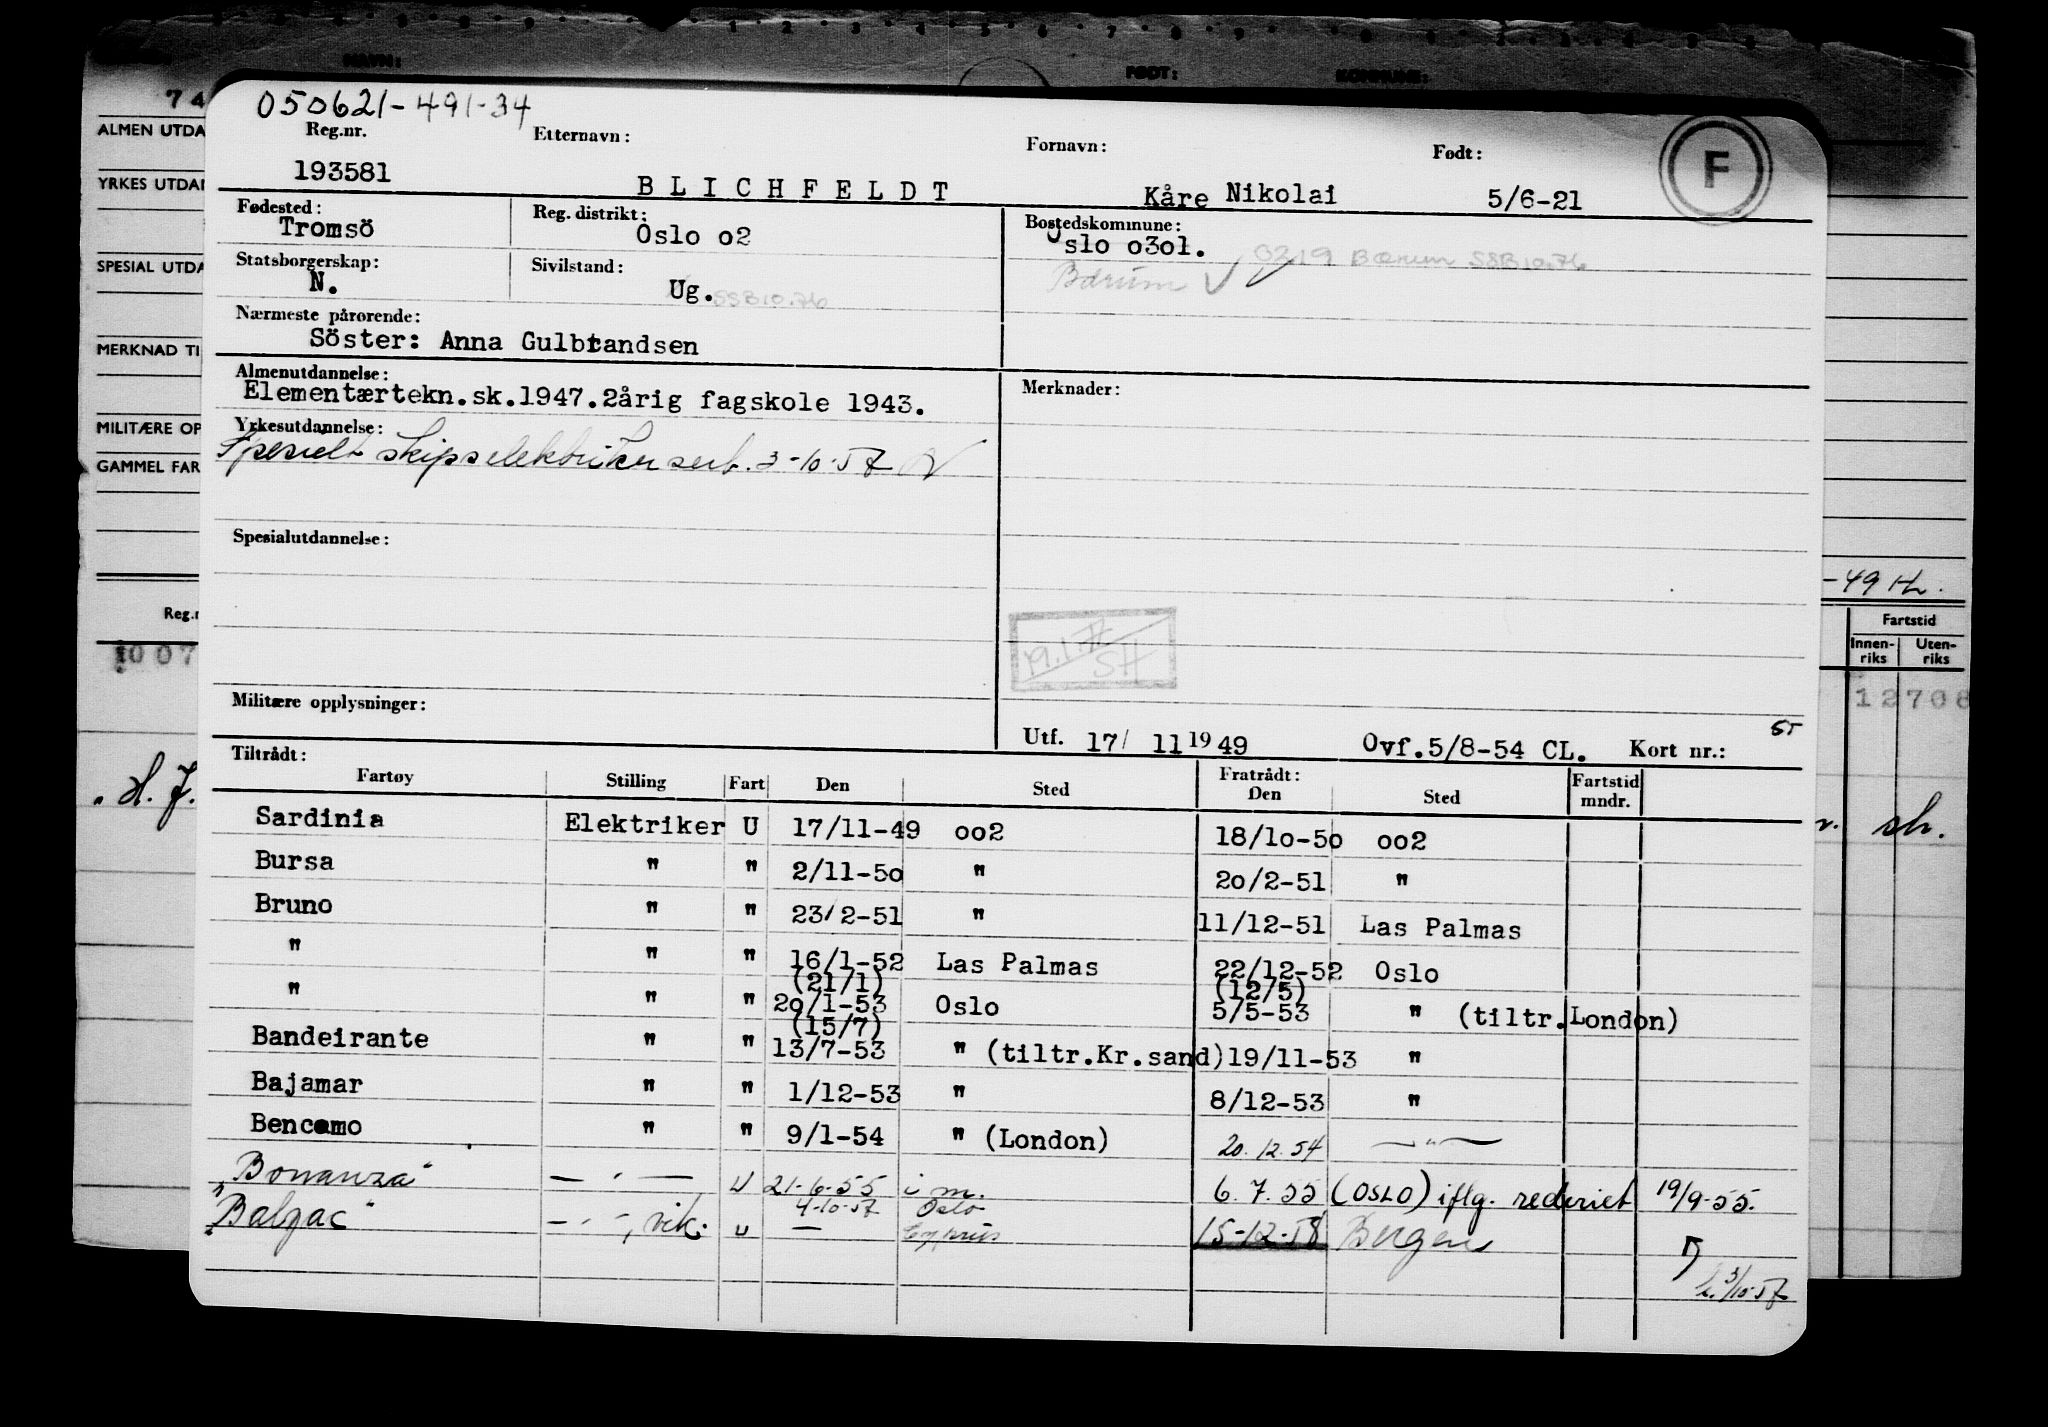 NAVN: FØDT: KOMMUNE:
74
ALMEN UTDA
YRKES UTDAN
SPESIAL UTDA
MERKNAD TI
MILITÆRE OP
GAMMEL FAR
-49
Reg.n
Fartstid
Innen-riks Uten-riks
007
12708
050621-491-34
Reg.nr. Etternavn: Fornavn: Født: F
193581 BLICHFELDT Kåre Nikolai 5/6-21
Fødested: Reg. distrikt: Bostedskommune:
Tromsö Oslo o2 Oslo o3ol.
0219 Bærum SSB 10.76
Statsborgerskap: Sivilstand: Bærum
N. Ug. SSB 10.76
Nærmeste pårørende:
Söster: Anna Gulbrandsen
Almenutdannelse: Merknader:
Elementærtekn.sk.1947.2årig fagskole 1943.
Yrkesutdannelse:
Spesielt skipselektriker sert. 3-10-57
Spesialutdannelse:
19.1.77
SH
Militære opplysninger:
Utf. 17/ 11 1949 Ovf.5/8-54 CL. Kort nr.:
Tiltrådt: Fratrådt:
Fartøy Stilling Fart Den Sted Den Sted Fartstid mndr.
Sardinia Elektriker U 17/11-49 oo2 18/1o-5o oo2
Bursa " " 2/11-5o " 2o/2-51 "
Bruno " " 23/2-51 " 11/12-51 Las Palmas
" " " 16/1-52 Las Palmas 22/12-52 Oslo
(21/1) (12/5)
" " " 2o/1-53 Oslo 5/5-53 " (tiltr.London)
(15/7)
Bandeirante " " 13/7-53 " (tiltr.Kr.sand) 19/11-53 "
Bajamar " " 1/12-53 " 8/12-53 "
Bencomo " " 9/1-54 " (London) 20.12.54 — " —
"Bonanza" — " — U 21-6-55 i m. 6.7.55 (OSLO) iflg. rederiet 19/9-55.
4-10-57 Oslo
"Balzac" — " —, vik. u — Cyprus 15-12-58 Bergen
3/10-57